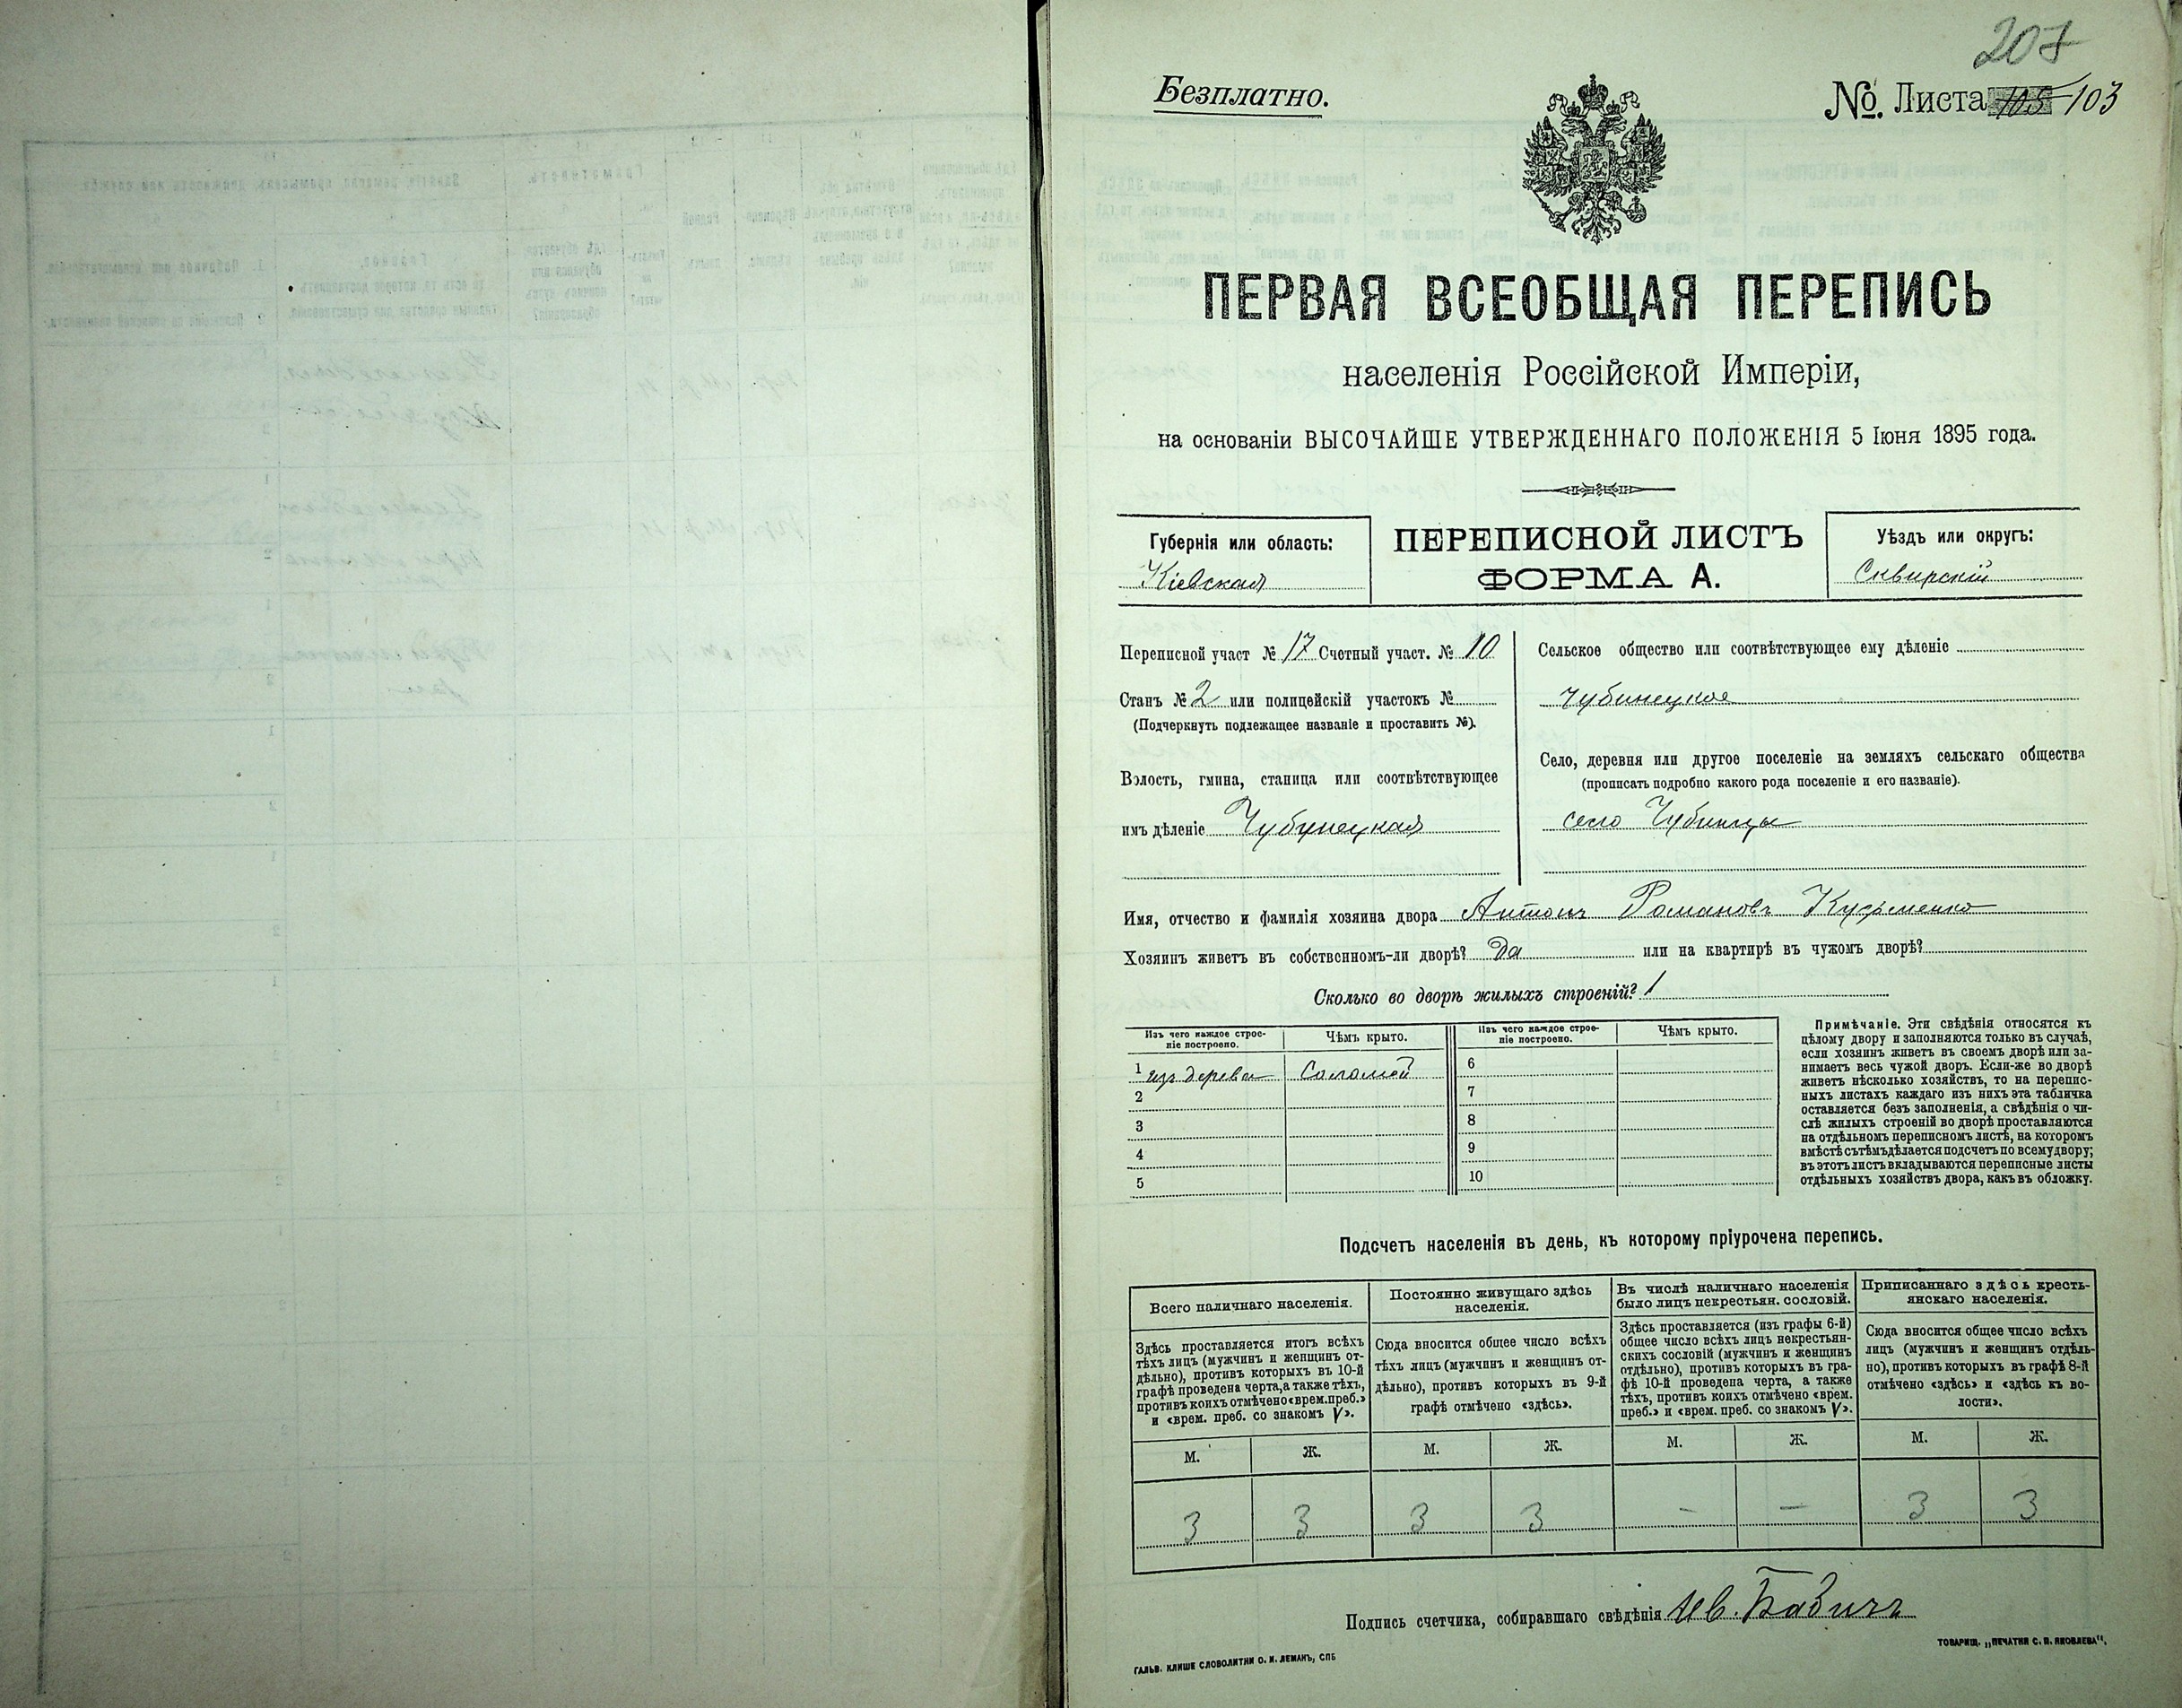 207
Безплатно.
№ Листа 105 103
ПЕРВАЯ ВСЕОБЩАЯ ПЕРЕПИСЬ
населенія Россійской Имперіи,
на основаніи ВЫСОЧАЙШЕ УТВЕРЖДЕННАГО ПОЛОЖЕНІЯ 5 Іюня 1895 года.
Губернія или область:
Кіевская
ПЕРЕПИСНОЙ ЛИСТЪ
ФОРМА А.
Уѣздъ или округъ:
Сквирскій
Переписной участ № 17 Счетный участ. № 10
Станъ № 2 или полицейскій участокъ №
(Подчеркнуть подлежащее названіе и проставить №).
Волость, гмина, станица или соотвѣтствующее
имъ дѣленіе Чубинецкая
Сельское общество или соотвѣтствующее ему дѣленіе
Чубинецкое
Село, деревня или другое поселеніе на земляхъ сельскаго общества
(прописать подробно какого рода поселеніе и его названіе).
село Чубинцы
Имя, отчество и фамилія хозяина двора Антонъ Романовъ Кузьменко
Хозяинъ живетъ въ собственномъ-ли дворѣ? Да или на квартирѣ въ чужомъ дворѣ?
Сколько во дворѣ жилыхъ строеній? 1
Изъ чего каждое строе-
ніе построено.
Чѣмъ крыто.
Изъ чего каждое строе-
ніе построено.
Чѣмъ крыто.
1 изъ дерева Соломой 6
2 7
3 8
4 9
5 10
Примѣчаніе. Эти свѣдѣнія относятся къ
цѣлому двору и заполняются только въ случаѣ,
если хозяинъ живетъ въ своемъ дворѣ или за-
нимаетъ весь чужой дворъ. Если-же во дворѣ
живетъ нѣсколько хозяйствъ, то на перепис-
ныхъ листахъ каждаго изъ нихъ эта табличка
оставляется безъ заполненія, а свѣдѣнія о чи-
слѣ жилыхъ строеній во дворѣ проставляются
на отдѣльномъ переписномъ листѣ, на которомъ
вмѣстѣ съ тѣмъ дѣлается подсчетъ по всему двору;
въ этотъ листъ вкладываются переписные листы
отдѣльныхъ хозяйствъ двора, какъ въ обложку.
Подсчетъ населенія въ день, къ которому пріурочена перепись.
Всего наличнаго населенія.
Здѣсь проставляется итогъ всѣхъ
тѣхъ лицъ (мужчинъ и женщинъ от-
дѣльно), противъ которыхъ въ 10-й
графѣ проведена черта, а также тѣхъ,
противъ коихъ отмѣчено «врем. преб.»
и «врем. преб. со знакомъ V».
М. Ж.
3 3
Постоянно живущаго здѣсь
населенія.
Сюда вносится общее число всѣхъ
тѣхъ лицъ (мужчинъ и женщинъ от-
дѣльно), противъ которыхъ въ 9-й
графѣ отмѣчено «здѣсь».
М. Ж.
3 3
Въ числѣ наличнаго населенія
было лицъ некрестьян. сословій.
Здѣсь проставляется (изъ графы 6-й)
общее число всѣхъ лицъ некрестьян-
скихъ сословій (мужчинъ и женщинъ
отдѣльно), противъ которыхъ въ гра-
фѣ 10-й проведена черта, а также
тѣхъ, противъ коихъ отмѣчено «врем.
преб.» и «врем. преб. со знакомъ V».
М. Ж.
- —
Приписаннаго здѣсь кресть-
янскаго населенія.
Сюда вносится общее число всѣхъ
лицъ (мужчинъ и женщинъ отдѣль-
но), противъ которыхъ въ графѣ 8-й
отмѣчено «здѣсь» и «здѣсь къ во-
лости».
М. Ж.
3 3
Подпись счетчика, собиравшаго свѣдѣнія Ив. Бабичъ
ГАЛЬВ. КЛИШЕ СЛОВОЛИТНИ О. И. ЛЕМАНЪ, СПБ
ТОВАРИЩ. „ПЕЧАТНИ С. П. ЯКОВЛЕВА“.